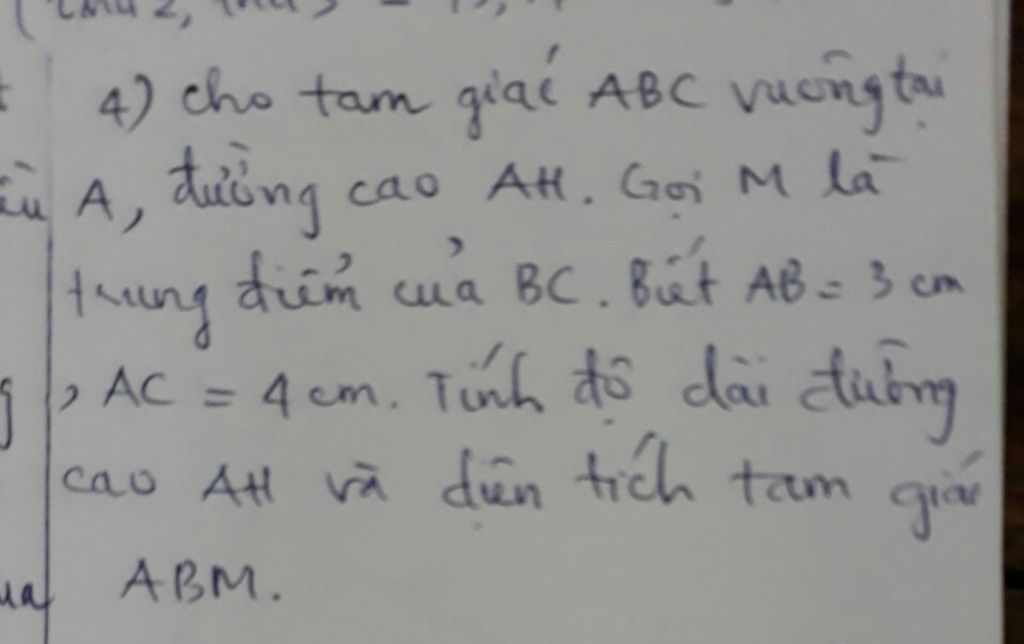 4) cho tam giác ABC vuông tại
A, đường cao AH. Gọi M là
trung điểm của BC. Biết AB = 3 cm
, AC = 4 cm. Tính độ dài đường
cao AH và diện tích tam giác
ABM.